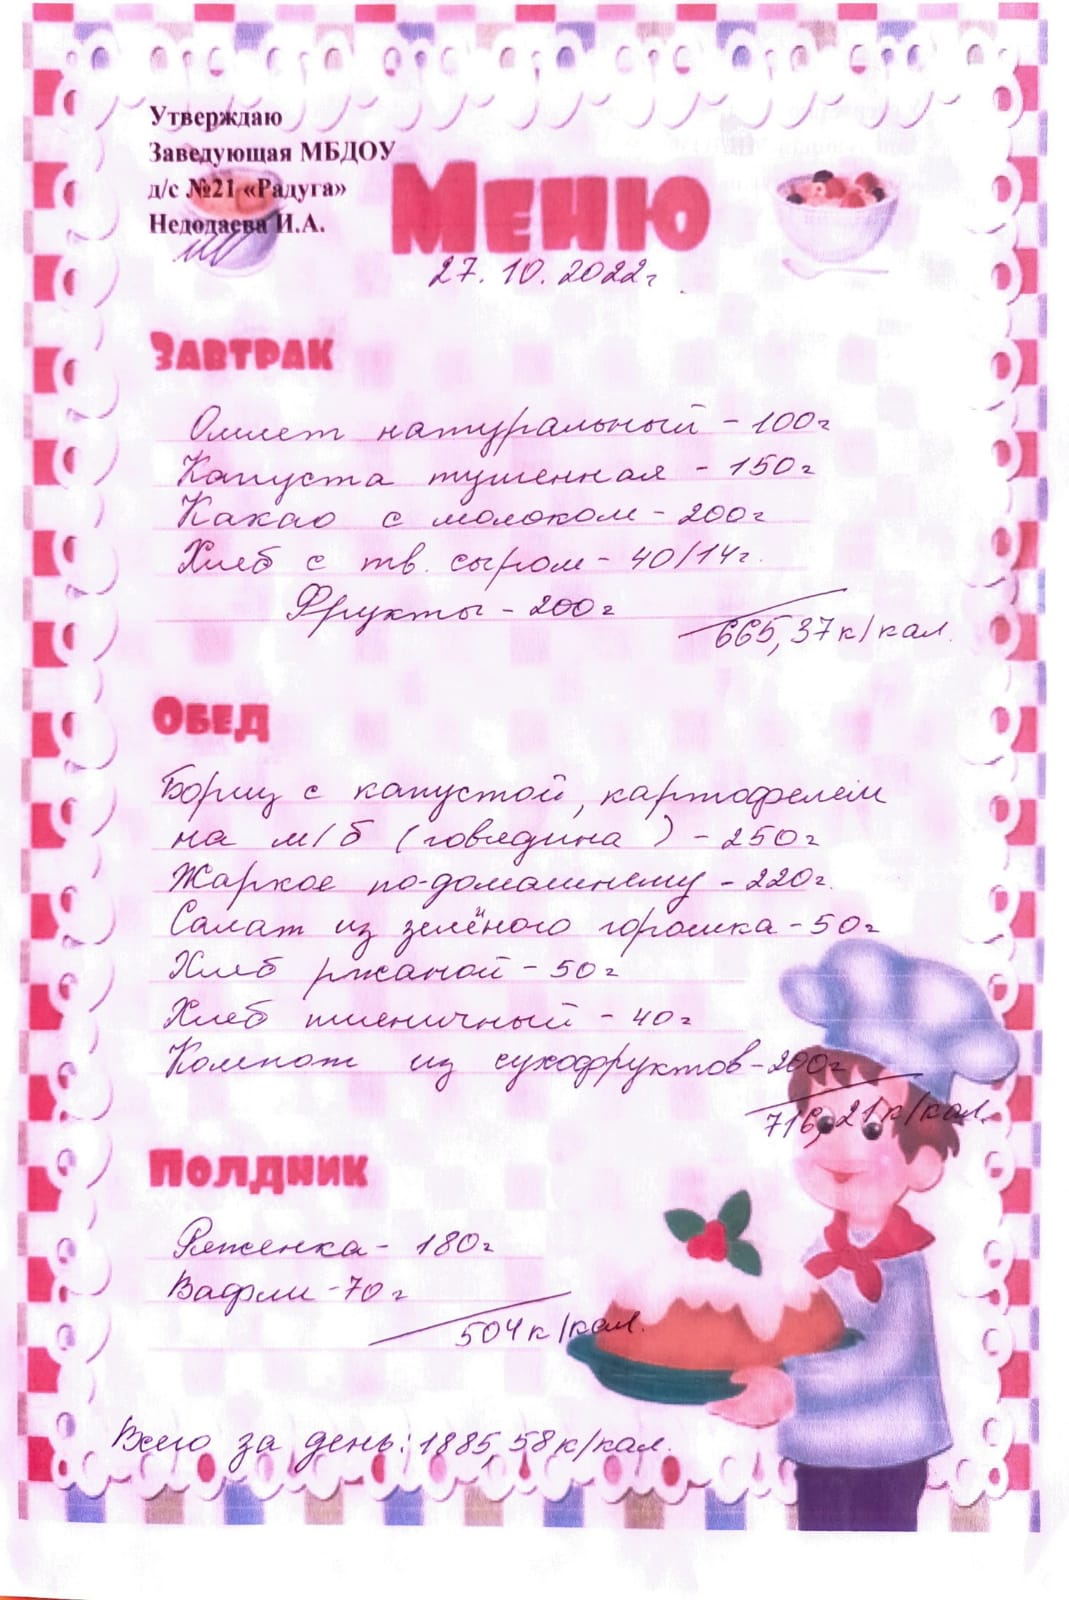 Утверждаю
Заведующая МБДОУ
д/с №21 «Радуга»
Недодаева И.А.
Меню
27.10.2022г.
Завтрак
Омлет натуральный - 100г
Капуста тушенная - 150г
Какао с молоком - 200г
Хлеб с тв. сыром - 40/14г.
Фрукты - 200г
665,37 к/кал.
Обед
Борщ с капустой, картофелем
на м/б (говядина) - 250г
Жаркое по-домашнему - 220г.
Салат из зелёного горошка - 50г
Хлеб ржаной - 50г
Хлеб пшеничный - 40г
Компот из сухофруктов - 200г
716,21 к/кал.
Полдник
Ряженка - 180г
Вафли - 70г
504 к/кал.
Всего за день: 1885,58 к/кал.